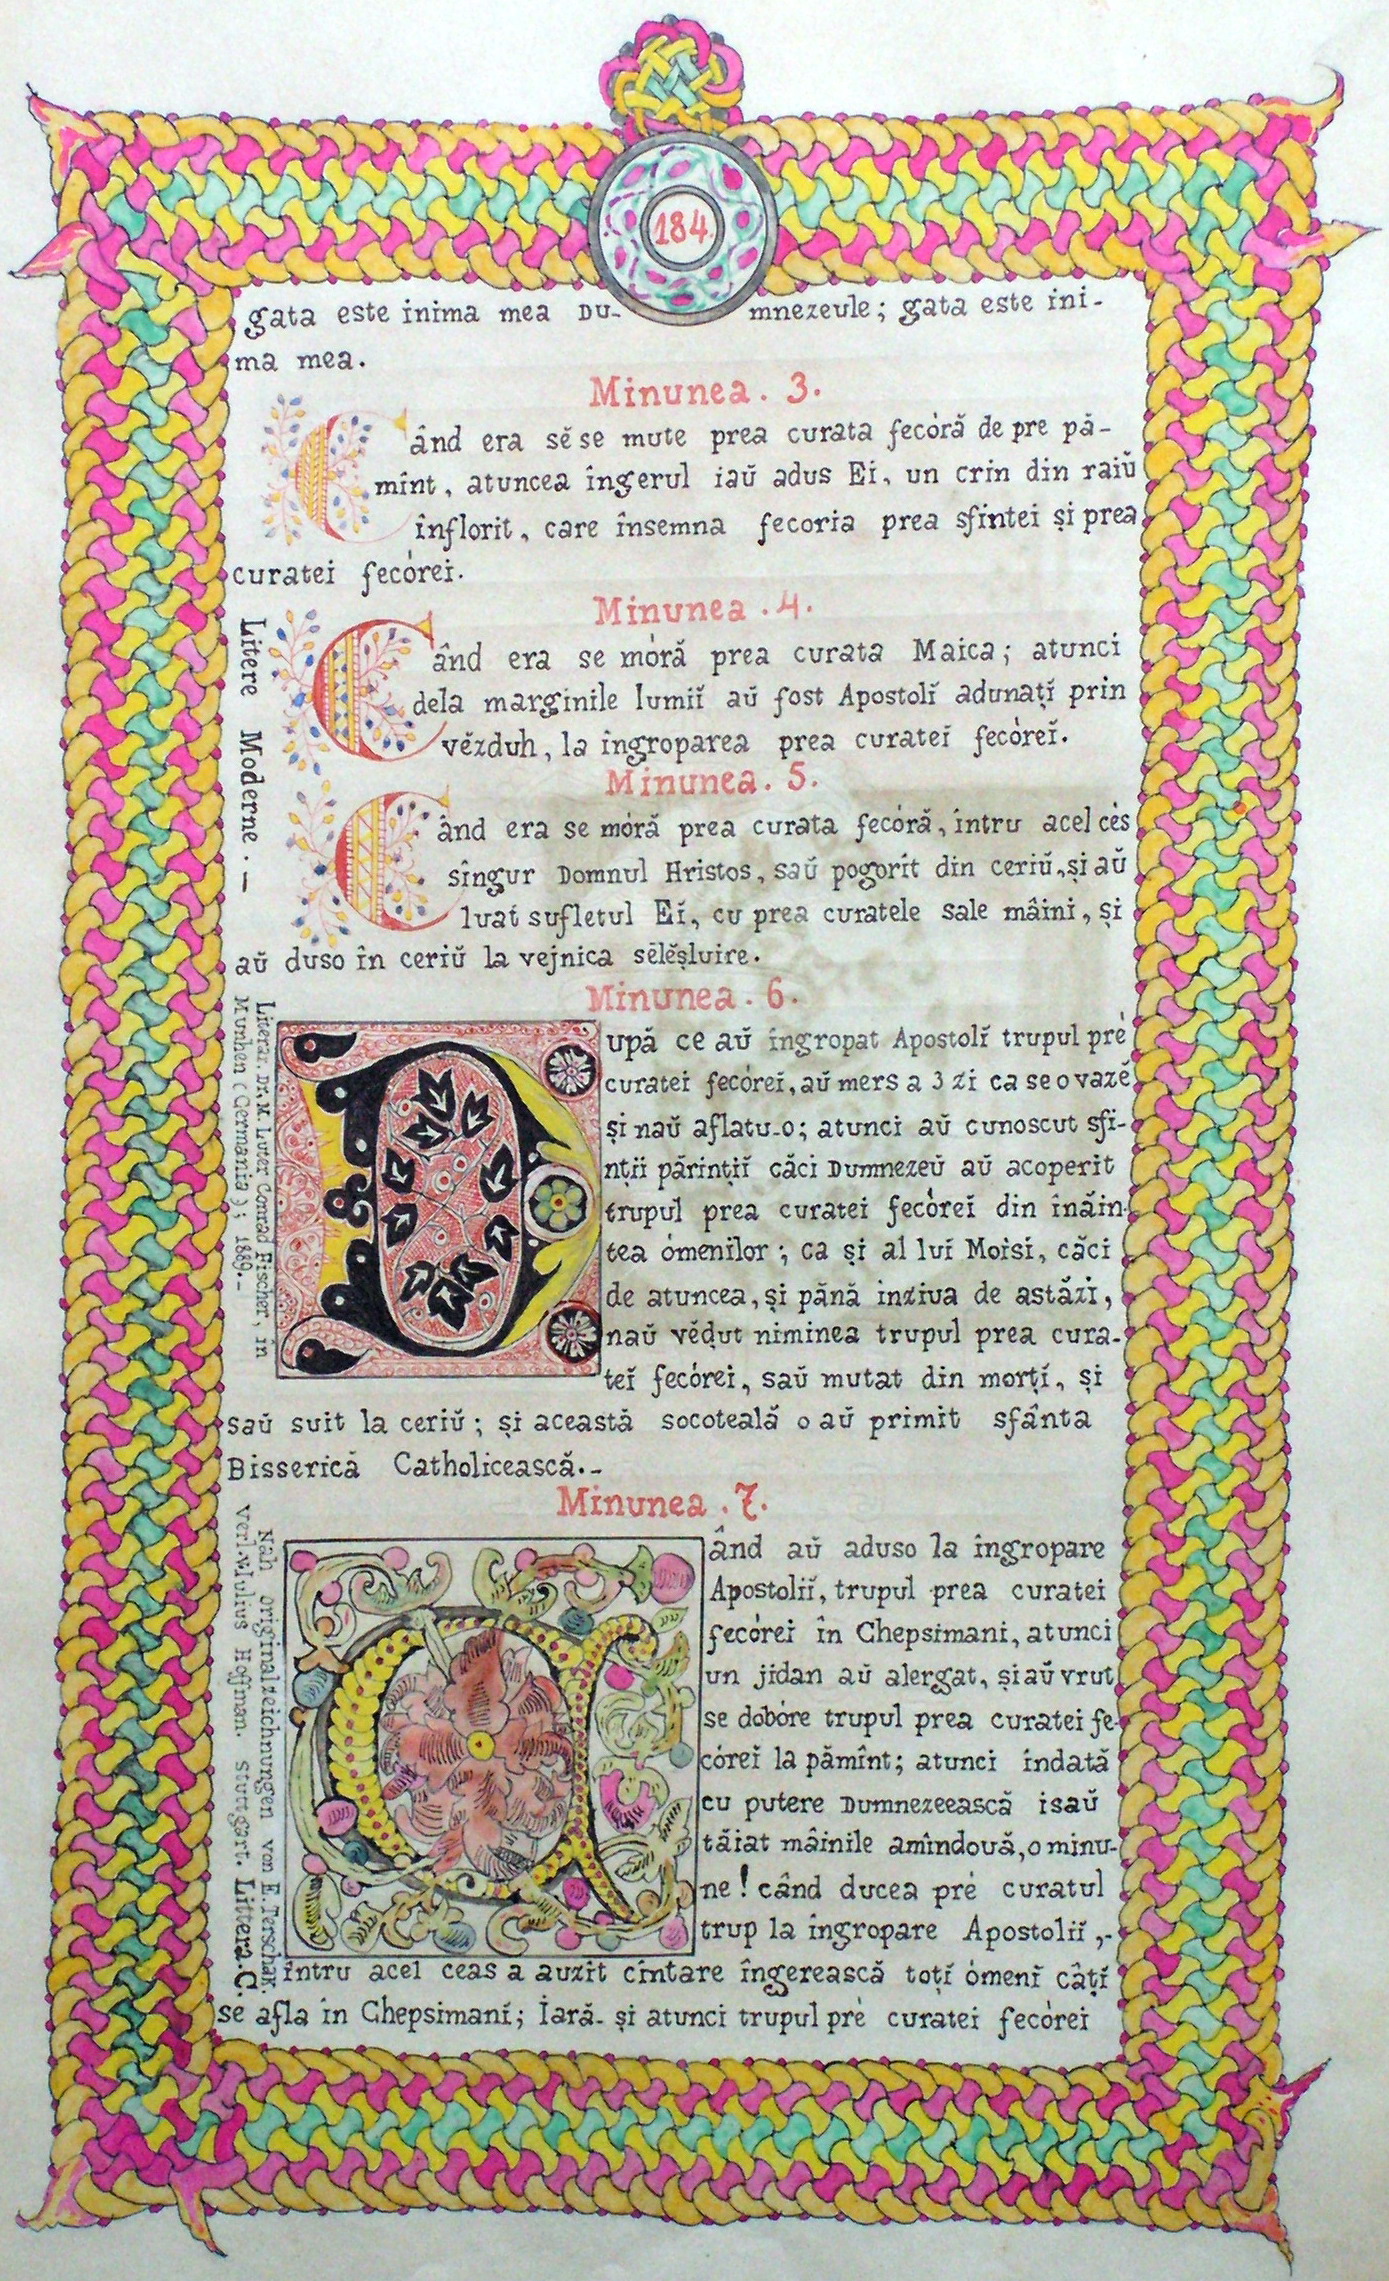 184.
gata este inima mea Du- mnezeule; gata este ini-
ma mea.
Minunea. 3.
Când era sĕ se mute prea curata fecóră de pre pă-
mînt, atuncea îngerul iaŭ adus Eĭ, un crin din raiŭ
înflorit, care însemna fecoria prea sfintei și prea
curatei fecórei.
Minunea .4.
Când era se móră prea curata Maica; atunci
dela marginile lumiĭ aŭ fost Apostolĭ adunațĭ prin
vĕzduh, la îngroparea prea curateĭ fecóreĭ.
Minunea. 5.
Când era se móră prea curata fecóră, întru acel cés
sîngur Domnul Hristos, saŭ pogorît din ceriŭ, și aŭ
luat sufletul Eĭ, cu prea curatele sale mâini, și
aŭ duso în ceriŭ la vejnica sĕlĕșluire.
Litere Moderne. —
Minunea. 6.
După ce aŭ îngropat Apostolĭ trupul pré
curatei fecóreĭ, aŭ mers a 3 zi ca se o vazĕ
și naŭ aflatu-o; atunci aŭ cunoscut sfi-
nții părințiĭ căci Dumnezeŭ aŭ acoperit
trupul prea curatei fecóreĭ din înăin-
tea ómenilor; ca și al luĭ Moisi, căci
de atuncea, și până inziua de astăzi,
naŭ vĕḑut niminea trupul prea cura-
teĭ fecórei, saŭ mutat din morțĭ, și
saŭ suit la ceriŭ; și această socoteală o aŭ primit sfânta
Bisserică Catholicească.-
Litera. D. M. Luter Conrad Fischer, in
Munhen (Germania); 1889.-
Minunea .7.
Când aŭ aduso la îngropare
Apostoliĭ, trupul prea curatei
fecórei în Ghepsimani, atunci
un jidan aŭ alergat, și aŭ vrut
se dobóre trupul prea curatei fe-
córeĭ la pămînt; atunci îndată
cu putere Dumnezeească isaŭ
tăiat mâinile amîndouă, o minu-
ne! când ducea pré curatul
trup la îngropare Apostoliĭ,-
întru acel ceas a auzit cîntare îngerească toțĭ ómenĭ câțĭ
se afla în Ghepsimanĭ; Iară- și atunci trupul pré curatei fecórei
Nah originalzeichnungen von E. Terschar.
Verl. v. Iulius Hoffman. Stuttgart. Littera. C.